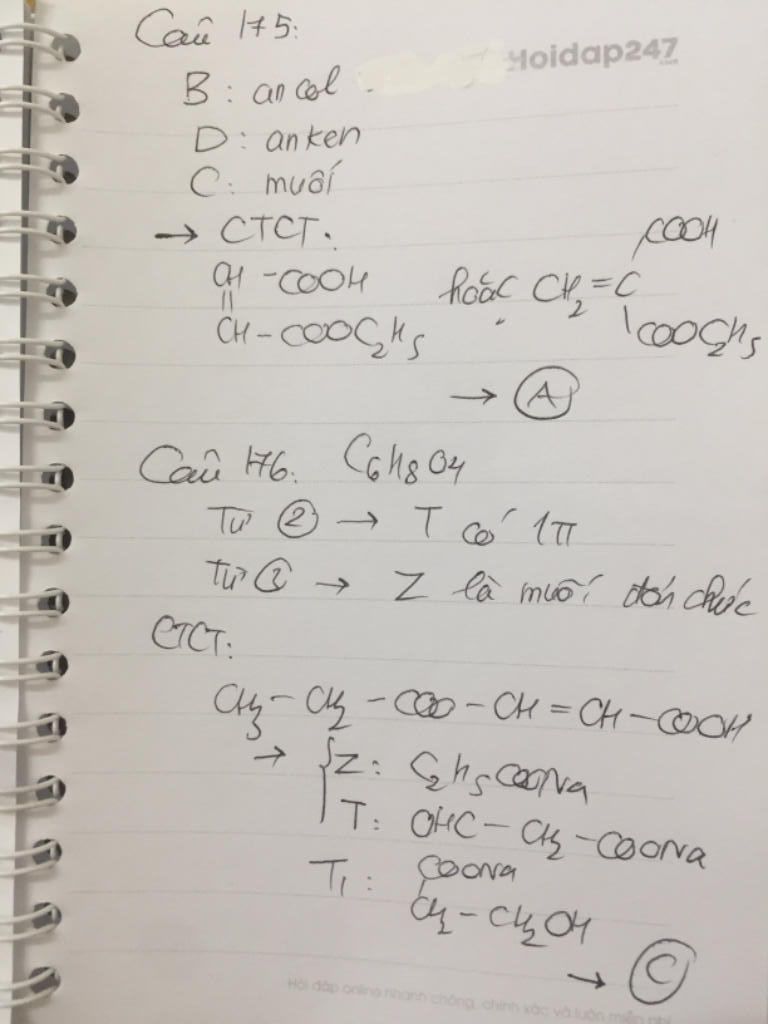 Câu 175:
Hoidap247
.com
B : ancol
D : anken
C : muối
→ CTCT.
CH - COOH hoặc CH2 = C COOH
||
CH - COOC2H5 \ COOC2H5
→ A
Câu 176. C6H8O4
Từ 2 → T có 1π
Từ 3 → Z là muối đơn chức
CTCT:
CH3 - CH2 - COO - CH = CH - COOH
→ { Z : C2H5COONa
T : OHC - CH2 - COONa
T1 : COONa
CH2 - CH2OH
→ C
Hỏi đáp online nhanh chóng, chính xác và luôn miễn phí